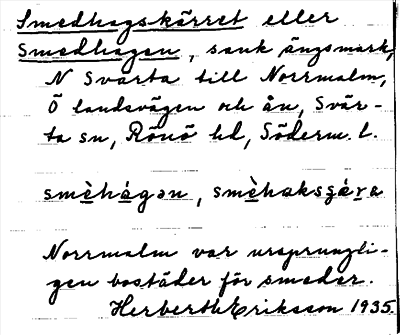 Smedhagskärret eller
Smedhagen, sank ängsmark,
N Svarta till Norrmalm,
Ö landsvägen och ån, Svär-
ta sn, Rönö hd, Söderm. l.
smèhágən, smèhaksçæ̀ra
Norrmalm var ursprungli-
gen bostäder för smeder.
Herberth Eriksson 1935.